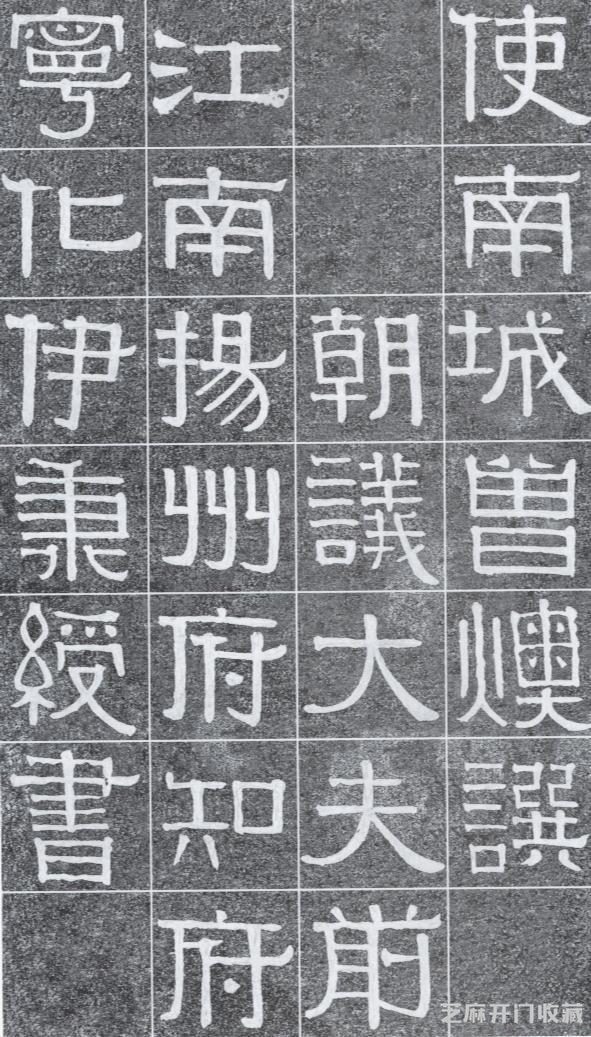 使南城曾燠譔
朝議大夫前
江南揚州府知府
寧化伊秉綬書
芝麻开门收藏